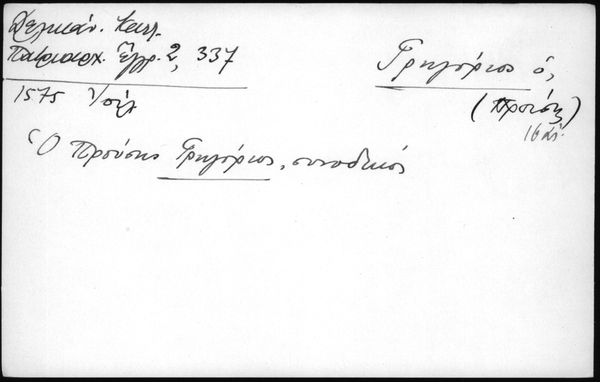 Δελικάν. Καλλ.
Πατριαρχ. Ἔγγρ. 2, 337
1575
Γρηγόριος ὁ,
(Προύσης)
16 αἰ.
Ὁ Προύσης Γρηγόριος, συνοδικός